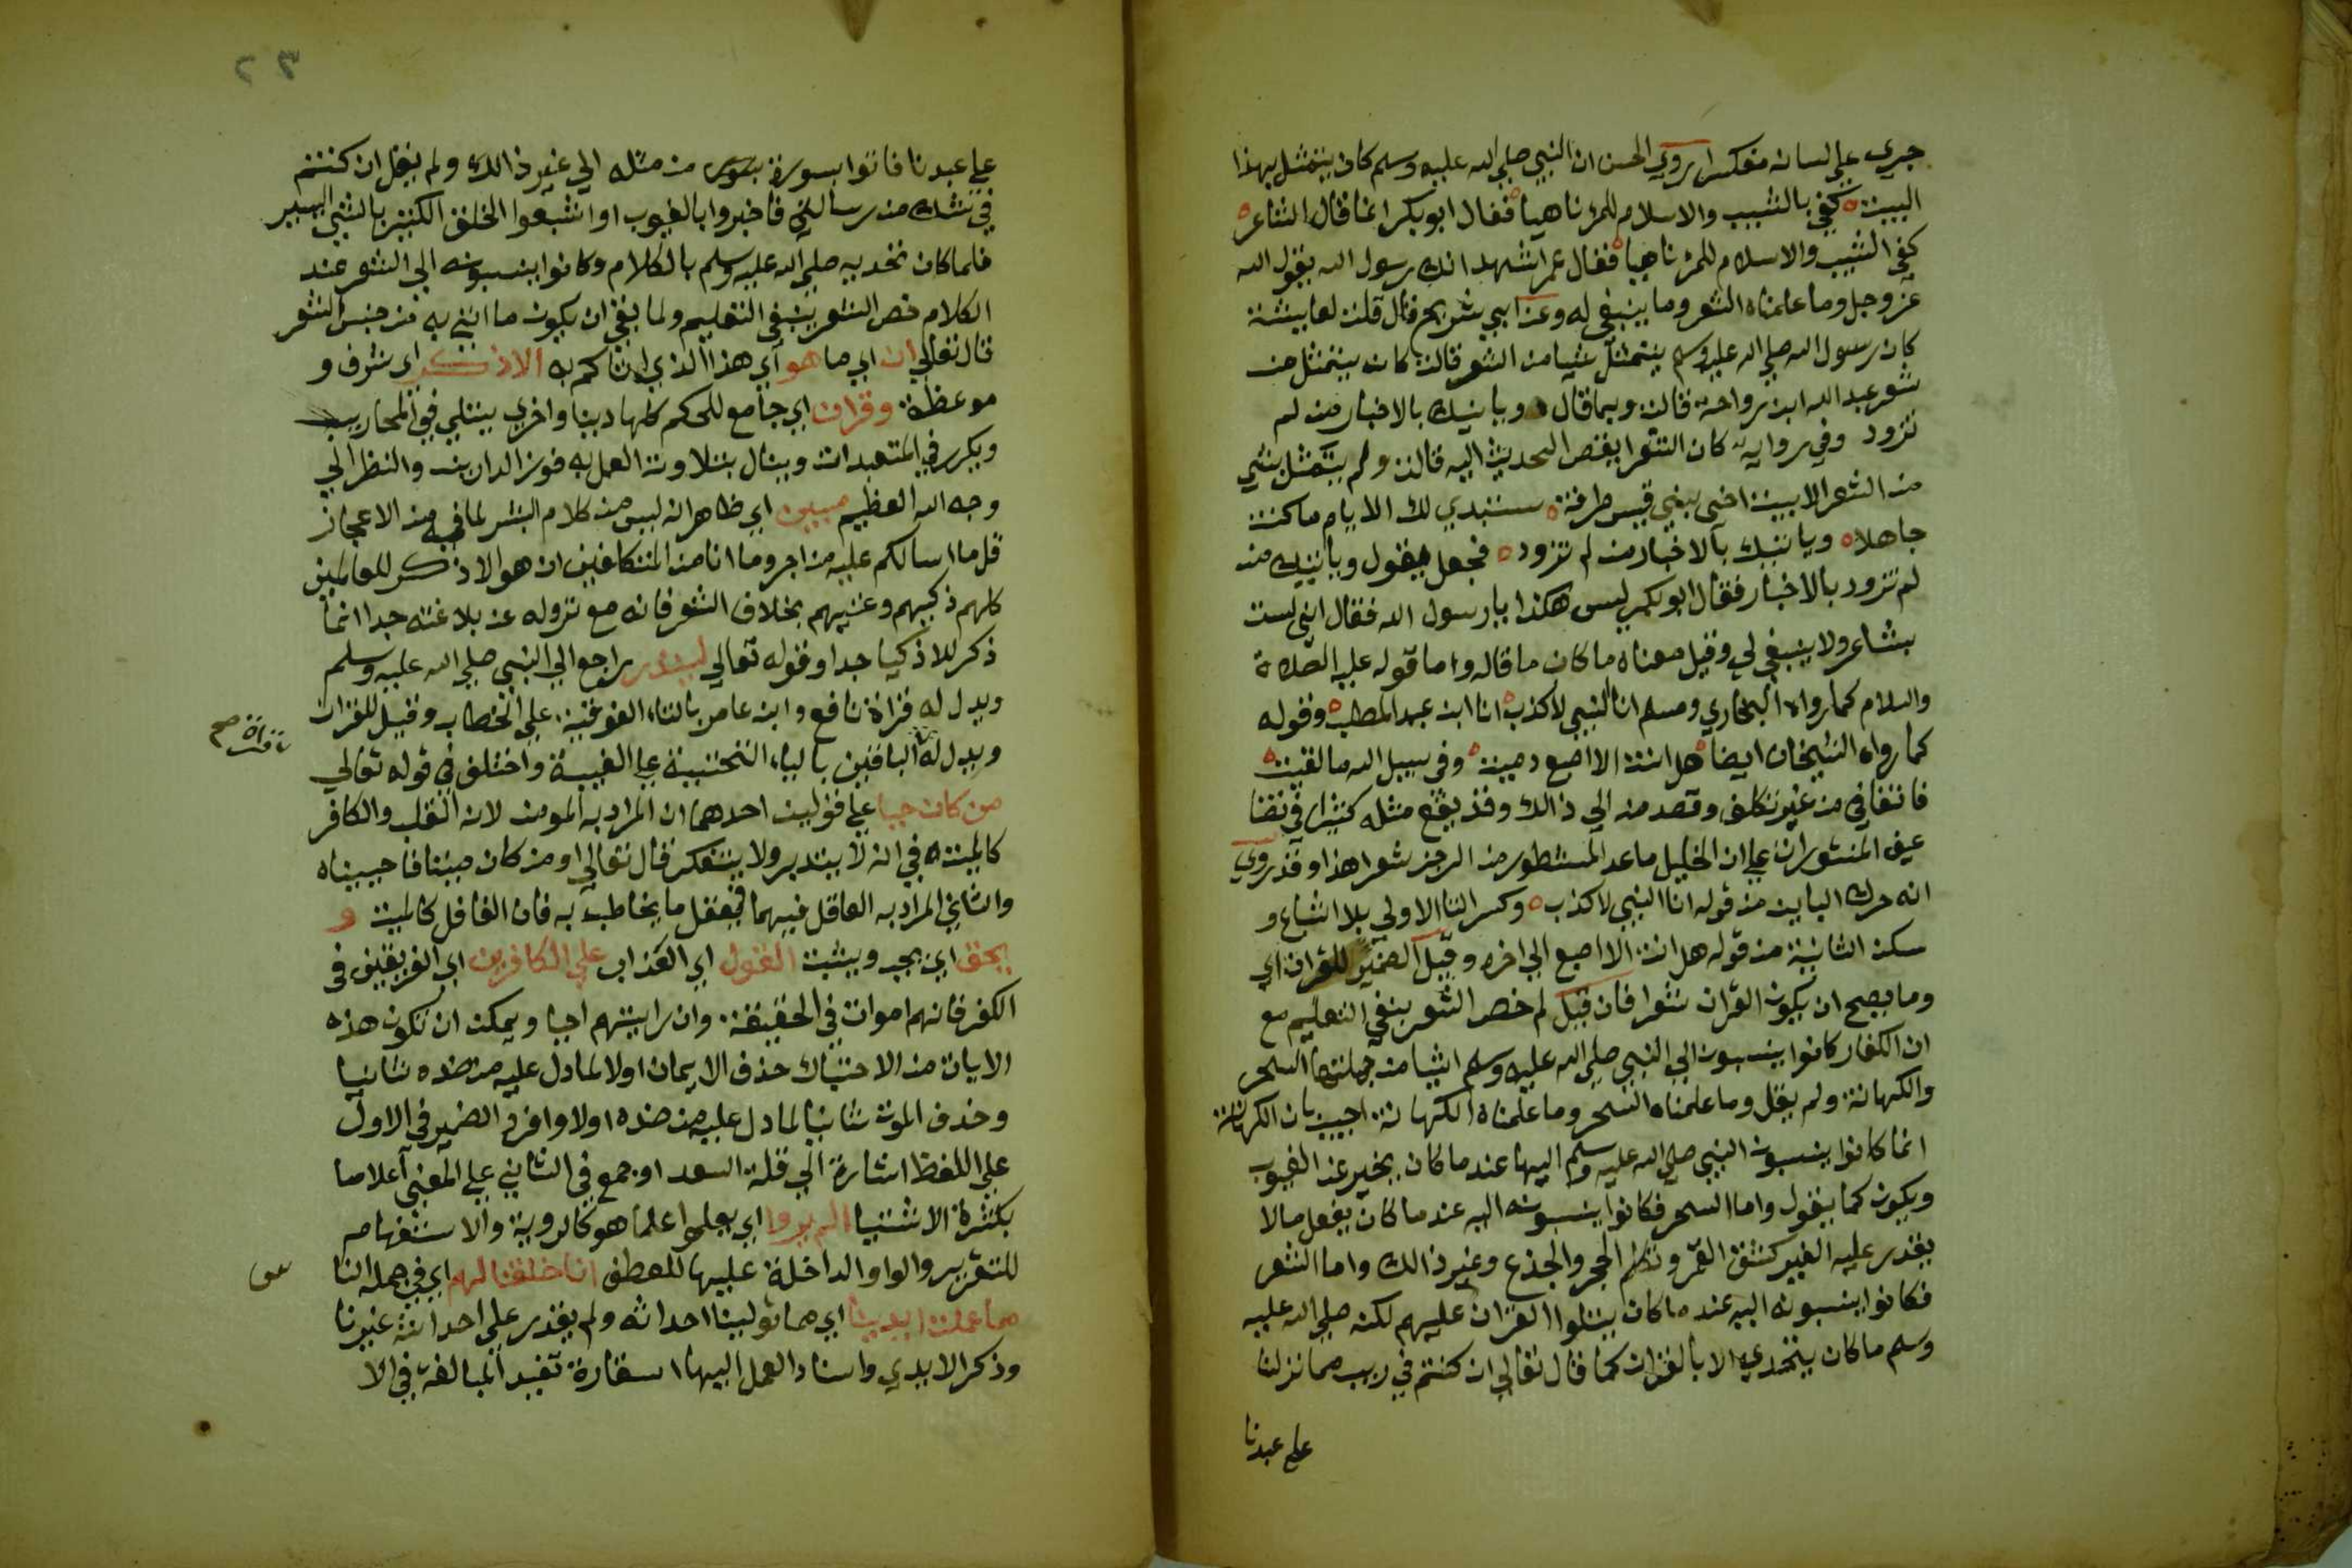 جري علي لسانه منكسرا روي الحسن ان النبي صلي الله عليه وسلم كان يتمثل بهذا
البيت كفي بالشيب والاسلام للمرء ناهيا فقال ابو بكر انما قال الشاعر
كفي الشيب والاسلام للمرء ناهيا فقال عمر اشهد انك رسول الله يقول الله
عز وجل وما علمناه الشعر وما ينبغي له وعن ابي شريح قال قلت لعايشة
كان رسول الله صلي الله عليه وسلم يتمثل شيا من الشعر قالت كان يتمثل من
شعر عبد الله ابن رواحة قالت وبما قال وياتيك بالاخبار من لم
تزود وفي رواية كان الشعر ابغض الحديث اليه قالت ولم يتمثل بشي
من الشعر الا بيت اخي بني قيس طرفة ستبدي لك الايام ما كنت
جاهلا وياتيك بالاخبار من لم تزود فجعل يقول وياتيك من
لم تزود بالاخبار فقال ابو بكر ليس هكذا يا رسول الله فقال اني لست
بشاعر ولا ينبغي لي وقيل معناه ما كان ما قاله واما قوله عليه الصلاة
والسلام كما رواه البخاري ومسلم انا النبي لا كذب انا ابن عبد المطلب وقوله
كما رواه الشيخان ايضا هل انت الا اصبع دميت وفي سبيل الله ما لقيت
فاتفاقي من غير تكلف وقصد منه الي ذالك وقد يقع مثله كثيرا في تضا
عيف المنثورات علي ان الخليل ما عد المشطور من الرجز شعرا هذا وقد روي
انه حرك البايين من قوله انا النبي لا كذب وكسر التا الاولي بلا اشباع و
سكن الثانية من قوله هل انت الا اصبع الي اخره وقيل الضمير للقران اي
وما يصح ان يكون القران شعرا فان قيل لم خص الشعر بنفي التعليم مع
ان الكفار كانوا ينسبون الي النبي صلي الله عليه وسلم اشيا من جملتها السحر
والكهانة ولم يقل وما علمناه السحر وما علمناه الكهانة اجيب بان الكهانة
انما كانوا ينسبون النبي صلي الله عليه وسلم اليها عند ما كان يخبر عن الغيوب
ويكون كما يقول واما السحر فكانوا ينسبونه اليه عند ما كان يفعل ما لا
يقدر عليه الغير كشق القمر وتكلم الحجر والجذع وغير ذالك واما الشعر
فكانوا ينسبونه اليه عند ما كان يتلوا القران عليهم لكنه صلي الله عليه
وسلم ما كان يتحدي الا بالقران كما قال تعالي ان كنتم في ريب مما نزلنا
علي عبدنا
٢٣
علي عبدنا فاتوا بسورة من مثله الي غير ذالك ولم يقل ان كنتم
في شك من رسالتي فاخبروا بالغيوب او اشبعوا الخلق الكثير بالشي اليسير
فلما كان تحديه صلي الله عليه وسلم بالكلام وكانوا ينسبونه الي الشعر عند
الكلام خص الشعر بنفي التعليم ولما نفي ان يكون ما اتي به من جنس الشعر
قال تعالي ان اي ما هو اي هذا الذي اتاكم به الا ذكر اي شرف و
موعظة وقران اي جامع للحكم كلها دينا واخري يتلي في المحاريب
ويكرر في المتعبدات وينال بتلاوته والعمل به فوز الدارين والنظر الي
وجه الله العظيم مبين اي ظاهر انه ليس من كلام البشر لما فيه من الاعجاز
قل ما اسالكم عليه من اجر وما انا من المتكلفين ان هو الا ذكر للعالمين
كلهم ذكيهم وغبيهم بخلاف الشعر فانه مع نزوله عن بلاغته جدا انما
ذكر للاذكيا جدا وقوله تعالي لينذر راجع الي النبي صلي الله عليه وسلم
ويدل له قراة نافع وابن عامر بالتاء الفوقية علي الخطاب وقيل للقران
ويدل له الباقين بالياء التحتية علي الغيبة واختلف في قوله تعالي
قراة صح
من كان حيا علي قولين احدهما ان المراد به المومن لانه القلب والكافر
كالميت في انه لا يتدبر ولا يتفكر قال تعالي او من كان ميتا فاحييناه
والثاني المراد به العاقل فيهما فيعقل ما يخاطب به فان الغافل كالميت و
يحق اي يجب ويثبت القول اي العذاب علي الكافرين اي الغريقين في
الكفر فانهم اموات في الحقيقة وان رايتهم احيا ويمكن ان تكون هذه
الايات من الاحتباك حذف الايمان اولا لما دل عليه من ضده ثانيا
وحذف الموت ثانيا لما دل عليه من ضده اولا وافرد الضمير في الاول
علي اللفظ اشارة الي قلة السعدا وجمع في الثاني علي المعني اعلاما
بكثرة الاشقيا اولم يروا اي يعلموا علما هو كالروية والاستفهام
للتقرير والواو الداخلة عليها للعطف انا خلقنا لهم اي في جملة النا
س
مما عملت ايدينا اي مما تولينا احداثه ولم يقدر علي احداثه غيرنا
وذكر الايدي واسناد العمل اليها استعارة تفيد المبالغة في الا